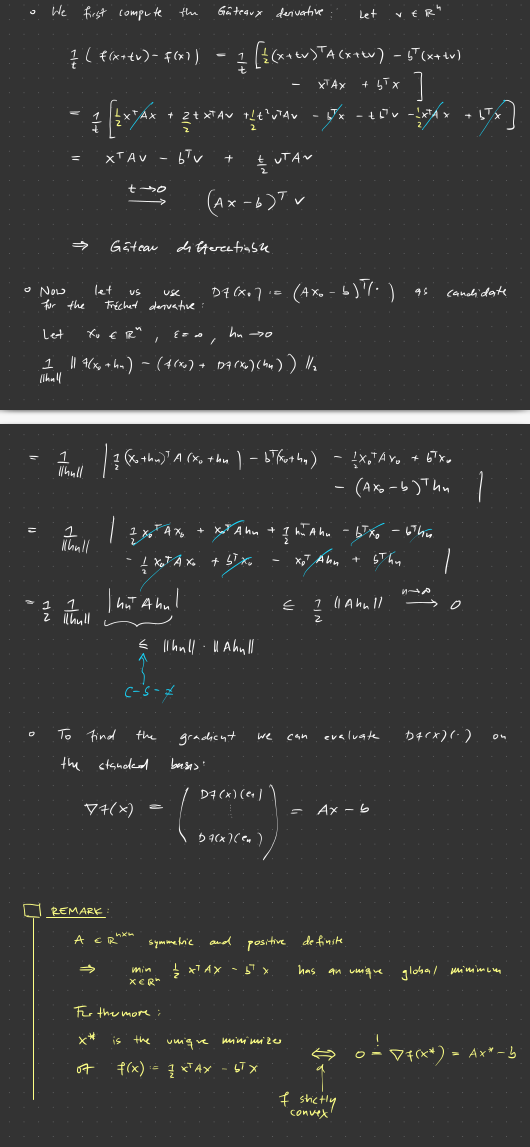 ∘ We first compute the Gâteaux derivative: Let v ∈ ℝⁿ
1/t ( f(x+tv) − f(x) ) = 1/t [ 1/2 (x+tv)ᵀA(x+tv) − bᵀ(x+tv)
− xᵀAx + bᵀx ]
= 1/t [ 1/2 xᵀAx + 2/2 t xᵀAv + 1/2 t² vᵀAv − bᵀx − t bᵀv − 1/2 xᵀAx + bᵀx ]
= xᵀAv − bᵀv + t/2 vᵀAv
t→0 ⟶ (Ax − b)ᵀ v
⇒ Gâteau differentiable
∘ Now let us use Df(x₀) := (Ax₀ − b)ᵀ(·) as candidate
for the Fréchet derivative:
Let x₀ ∈ ℝⁿ, ε = ∞, hₙ → 0
1/‖hₙ‖ ‖ f(x₀+hₙ) − (f(x₀) + Df(x₀)(hₙ)) ‖₂
= 1/‖hₙ‖ | 1/2 (x₀+hₙ)ᵀA(x₀+hₙ) − bᵀ(x₀+hₙ) − 1/2 x₀ᵀAx₀ + bᵀx₀
− (Ax₀ − b)ᵀhₙ |
= 1/‖hₙ‖ | 1/2 x₀ᵀAx₀ + x₀ᵀAhₙ + 1/2 hₙᵀAhₙ − bᵀx₀ − bᵀhₙ
− 1/2 x₀ᵀAx₀ + bᵀx₀ − x₀ᵀAhₙ + bᵀhₙ |
= 1/2 1/‖hₙ‖ |hₙᵀAhₙ| ≤ 1/2 ‖Ahₙ‖ n→∞ ⟶ 0
≤ ‖hₙ‖ · ‖Ahₙ‖
C-S-≠
∘ To find the gradient we can evaluate Df(x)(·) on
the standard basis:
∇f(x) = ( Df(x)(e₁) ⋮ Df(x)(eₙ) ) = Ax − b
REMARK:
A ∈ ℝⁿˣⁿ symmetric and positive definite
⇒ min x∈ℝⁿ 1/2 xᵀAx − bᵀx has an unique global minimum
Furthermore:
x* is the unique minimizer
of f(x) = 1/2 xᵀAx − bᵀx ⇔ 0 =! ∇f(x*) = Ax* − b
f strictly
convex